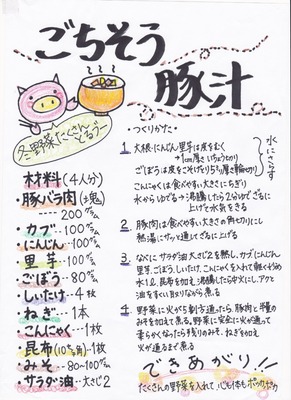 ごちそう
豚汁
冬野菜たくさん
とるブー
材料(4人分)
・豚バラ肉(塊)
---- 200グラム
・カブ---100グラム
・にんじん---100グラム
・里芋---100グラム
・ごぼう---80グラム
・しいたけ--4枚
・ねぎ---1本
・こんにゃく---1枚
・昆布(10センチ角)--1枚
・みそ---80~100グラム
・サラダ油---大さじ2
・つくりかた・
1 大根・にんじん、里芋は皮をむく
→1cm厚さいちょう切り
ごぼうは皮をこそげたり5ミリ厚さ輪切り
水にさらす
こんにゃくは食べやすい大きさにちぎり
水からゆでる→沸騰したら2分ゆでざるに
上げて水気をきる
2. 豚肉は食べやすい大きさの角切りにし
熱湯にサッと通してざるに上げる
3. なべにサラダ油大さじ2を熱し、カブ、にんじん
里芋、ごぼう、しいたけ、こんにゃくを入れて軽くいため
水1ℓ、昆布を加え沸騰したら中火にし、アクと
油をすくい取りながら煮る
4. 野菜に火が5割方通ったら、豚肉と半量の
みそを加えて煮る。野菜に完全に火が通って
柔らかくなったら残りのみそ、ねぎを加え
火が通るまで煮る
できあがり!!
たくさんの野菜を入れて、心も体もポッカポカ